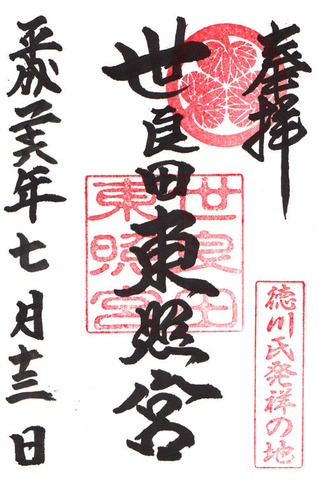 奉拝
徳川氏発祥の地
世良田東照宮
世良田
東照宮
平成二六年七月十三日